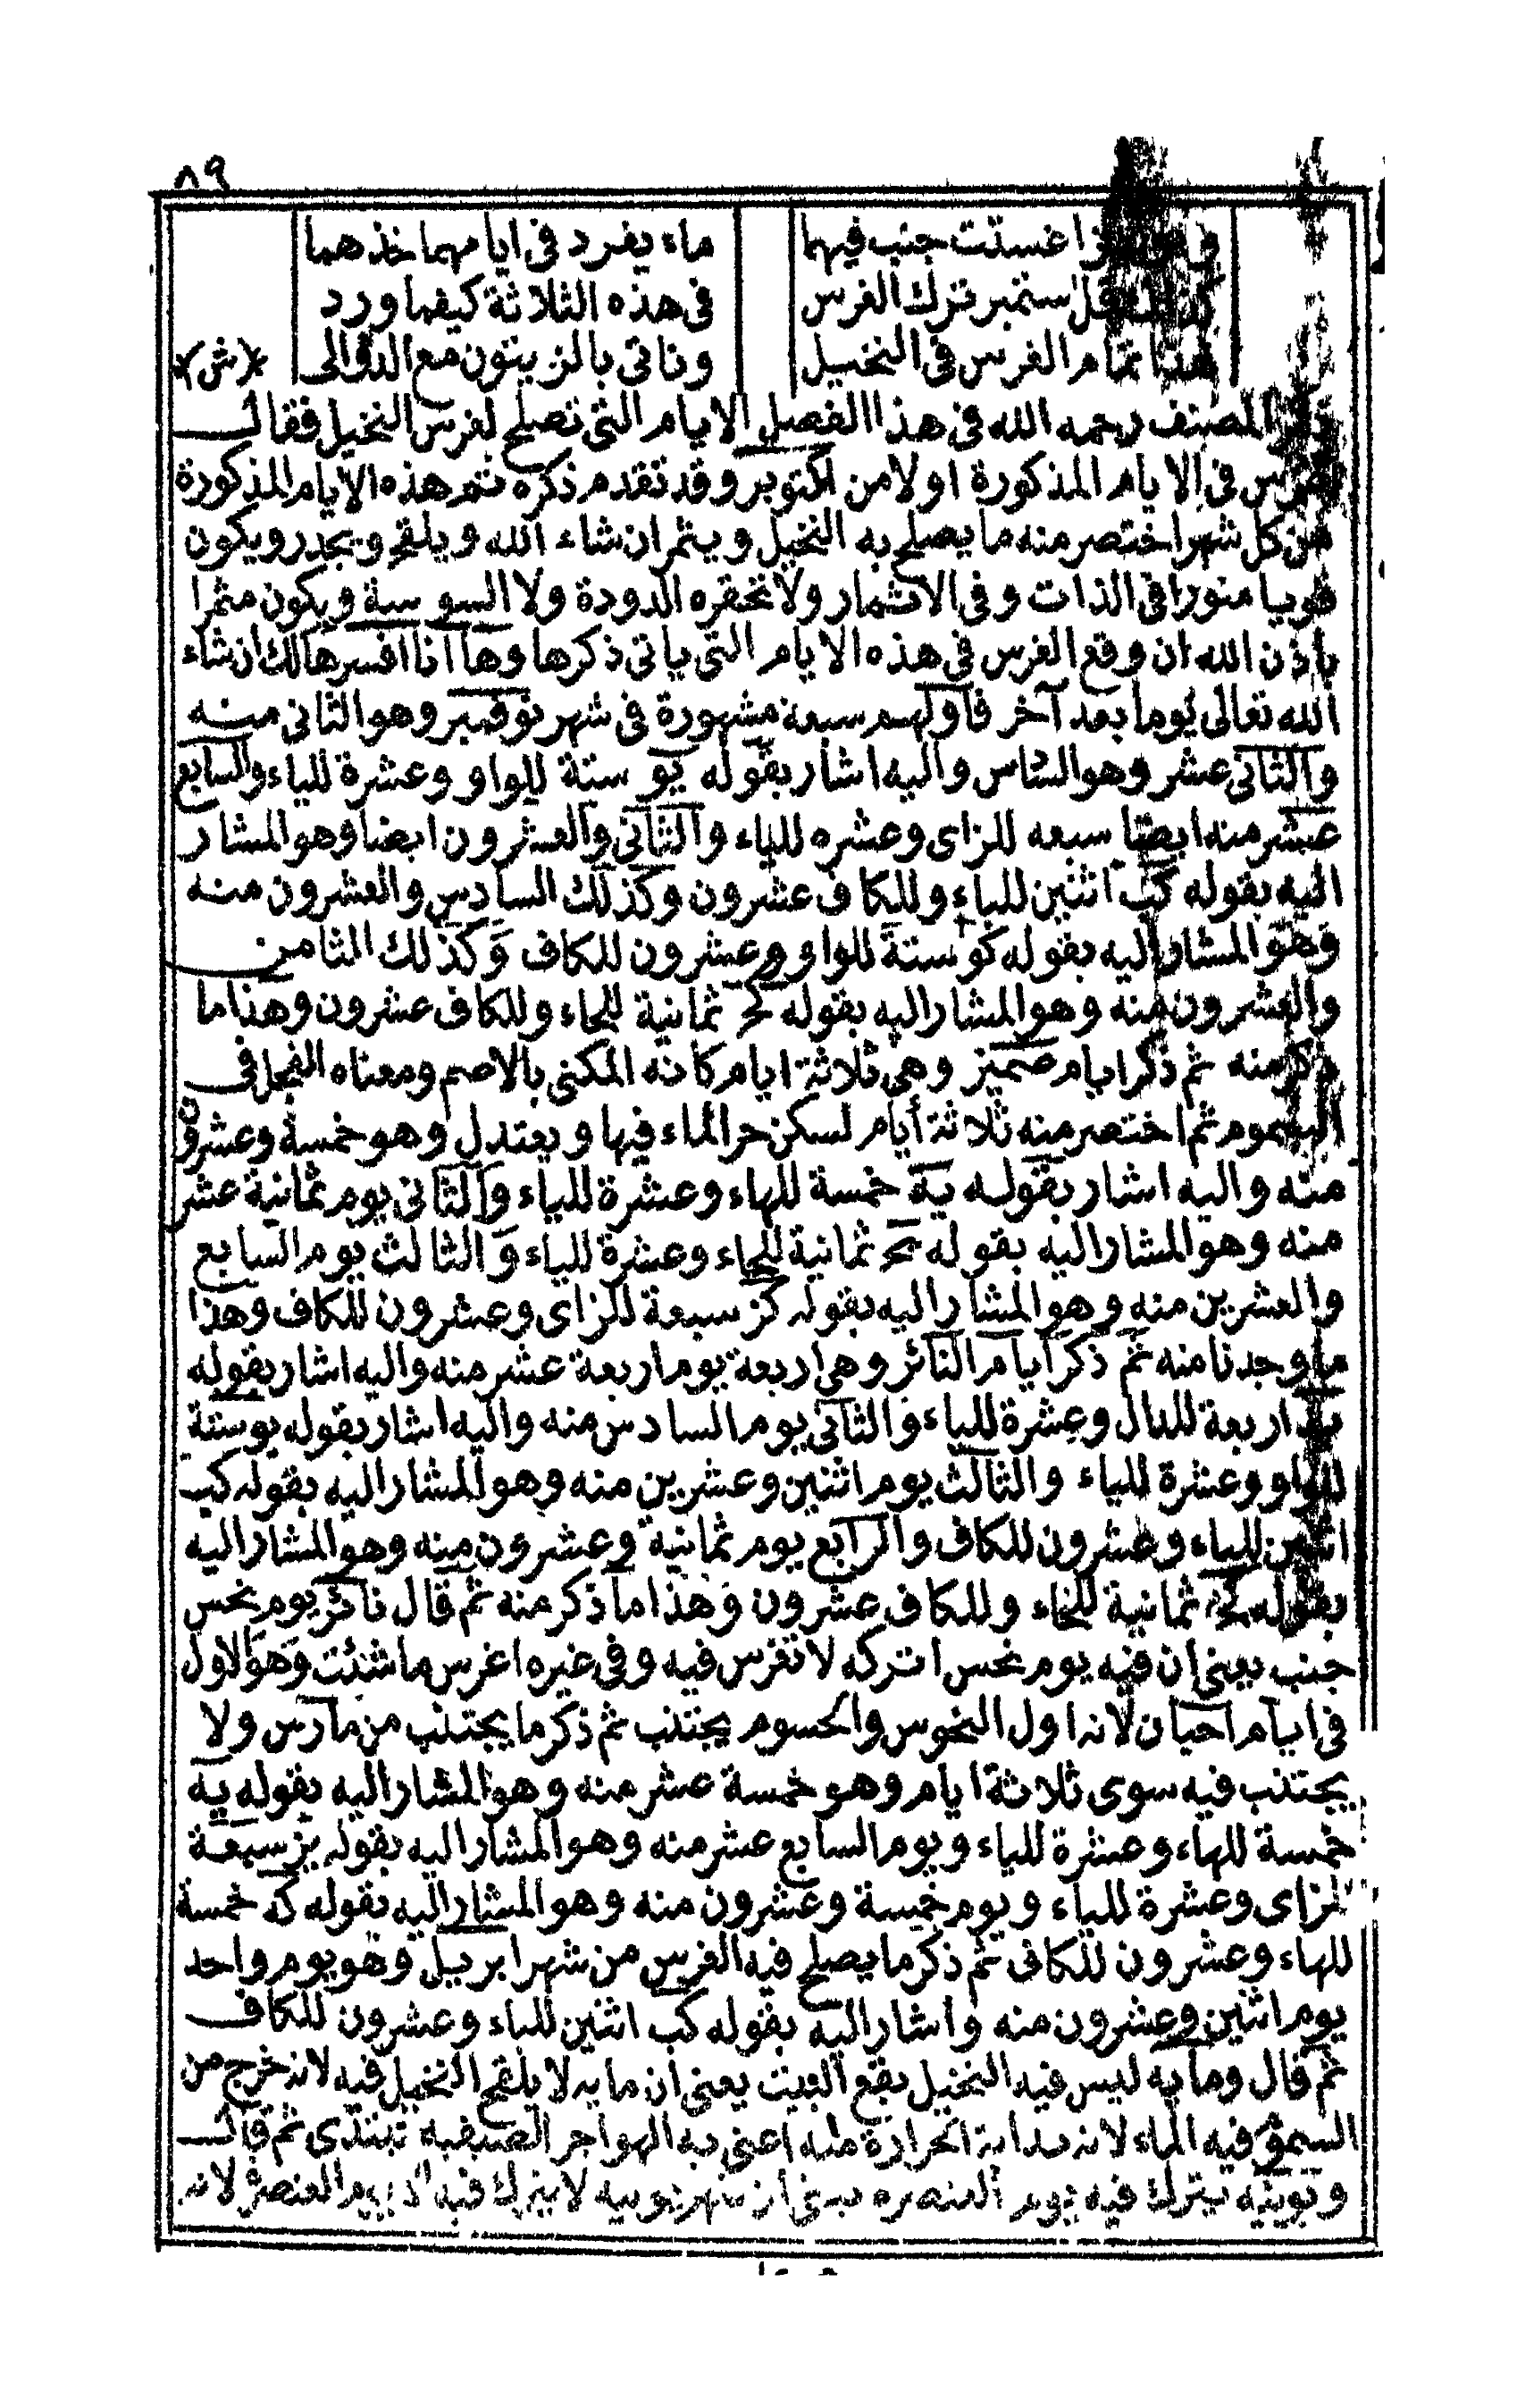 ٨٩
غستت جنب فيهما ماء يفرد فى ايا مهما خذ هما
ستمبر ترك الغرس فى هذه الثلاثة كيفما ورد
هذا تمام الغرس فى النخيل وناتى بالزيتون مع الدوالى (ش)
المصنف رحمه الله فى هذا الفصل الايام التى تصلح لغرس النخيل فقال
فى الايام المذكورة اولا من اكتوبر وقد تقدم ذكره ثم هذه الايام المذكورة
من كل شهر اختصر منه ما يصلح به النخيل ويثمر ان شاء الله ويلقح ويجدر ويكون
قويا منورا فى الذات وفى الاثمار ولا تحقره الدودة ولا السوسة ويكون مثمرا
باذن الله ان وقع الغرس فى هذه الايام التى ياتى ذكرها وها انا افسرها لك ان شاء
الله تعالى يوما بعد آخر فاولهم سبعة مشهورة فى شهر نوفمبر وهو الثانى منه
والثانى عشر وهو السادس واليه اشار بقوله يو ستة للواو وعشرة للياء والسابع
عشر منه ايضا سبعه للزاى وعشره للياء والثانى والعشرون ايضا وهو المشار
اليه بقوله كب اثنين للباء وللكاف عشرون وكذلك السادس والعشرون منه
وهو المشار اليه بقوله كو ستة للواو وعشرون للكاف وكذلك الثامن
والعشرون منه وهو المشار اليه بقوله كح ثمانية للحاء وللكاف عشرون وهذا ما
ذكر منه ثم ذكر ايام صميز وهى ثلاثة ايام كانه المكنى بالاصم ومعناه الفجل فى
السموم ثم اختصر منه ثلاثة أيام لسكن حر الماء فيها ويعتدل وهو خمسة وعشرون
منه واليه اشار بقوله يه خمسة للهاء وعشرة للياء والثانى يوم ثمانية عشر
منه وهو المشار اليه بقوله يح ثمانية للحاء وعشرة للياء والثالث يوم السابع
والعشرين منه وهو المشار اليه بقوله كز سبعة للزاى وعشرون للكاف وهذا
ما وجدنا منه ثم ذكر ايام النائر وهى اربعة يوم اربعة عشر منه واليه اشار بقوله
يد اربعة للدال وعشرة للياء والثانى يوم السادس منه واليه اشار بقوله يو ستة
للواو وعشرة للياء والثالث يوم اثنين وعشرين منه وهو المشار اليه بقوله كب
اثنين للباء وعشرون للكاف والرابع يوم ثمانية وعشرون منه وهو المشار اليه
بقوله كح ثمانية للحاء وللكاف عشرون وهذا ما ذكر منه ثم قال نائر يوم نحس
جنب يعنى ان فيه يوم نحس اتركه لا تغرس فيه وفى غيره اغرس ما شئت وهو الاول
فى ايام احيان لانه اول النحوس والحسوم يجتنب ثم ذكر ما يجتنب من مارس ولا
يجتنب فيه سوى ثلاثة ايام وهو خمسة عشر منه وهو المشار اليه بقوله يه
خمسة للهاء وعشرة للياء ويوم السابع عشر منه وهو المشار اليه بقوله يز سبعة
للزاى وعشرة للياء ويوم خمسة وعشرون منه وهو المشار اليه بقوله كه خمسة
للهاء وعشرون للكاف ثم ذكر ما يصلح فيه الغرس من شهر ابريل وهو يوم واحد
يوم اثنين وعشرون منه واشار اليه بقوله كب اثنين للباء وعشرون للكاف
ثم قال ومايه ليس فيه النخيل بقع النبت يعنى ان مايه لا يلقح النخيل فيه لانه خرج من
السمو فيه الماء لانه بداية الحرارة منه اعنى به الهواجر الصيفيه تبتدى ثم قال
ويونيه يترك فيه يوم العنصره يعنى ان شهر يونيه لا يترك فيه الا يوم العنصرة لانه